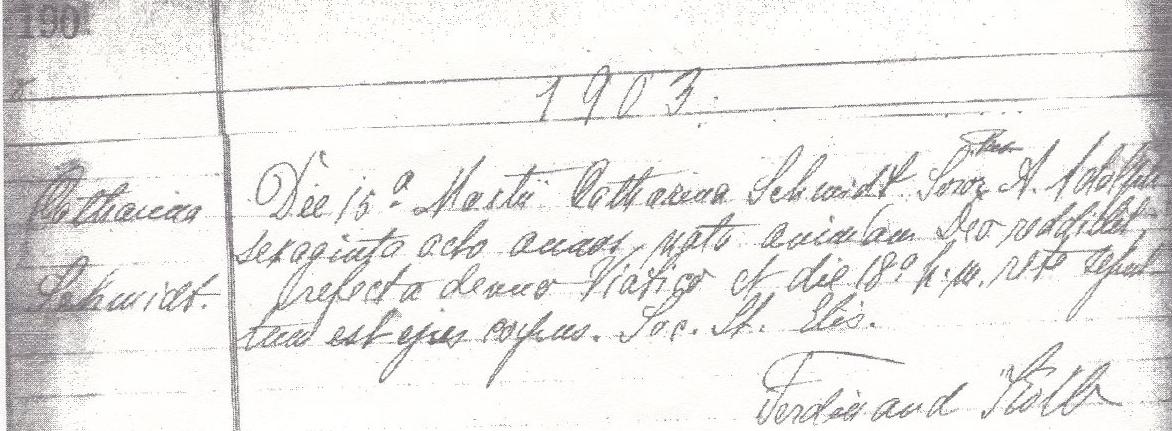 190
1903.
Catharina
Schmidt.
Die 15ª Martii Catharina Schmidt Soror A.
sexaginta octo annos nata animam Deo reddidit,
refecta denuo Viatico et die 18ª h. m. rite sepul-
tum est ejus corpus. Soc. St. Elis.
Ferdinand